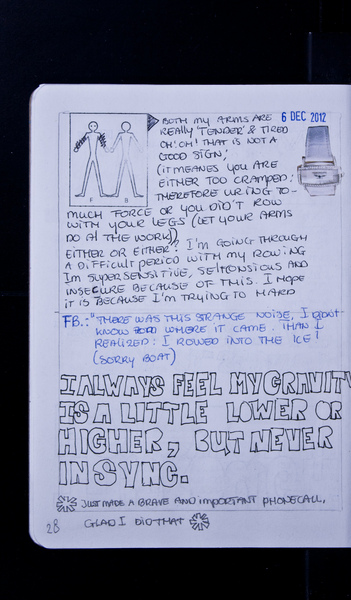 BOTH MY ARMS ARE
6 DEC 2012
REALLY 'TENDER' & TIRED
OH! OH! THAT IS NOT A
GOOD SIGN;
(IT MEANS YOU ARE
EITHER TOO CRAMPED:
THEREFORE USING TO-
MUCH FORCE OR YOU DID'T ROW
WITH YOUR LEGS (LET YOUR ARMS
DO AL THE WORK))
EITHER OR EITHER? I'M GOING THROUGH
A DIFFICULT PERIOD WITH MY ROWING
IM SUPERSENSITIVE, SERIOUS AND
INSECURE BECAUSE OF THIS. I HOPE
IT IS BECAUSE I'M TRYING TO HARD
F B
FB.: "THERE WAS THIS STRANGE NOISE, I DIDN'T
KNOW WHERE IT CAME. THAN I
REALIZED: I ROWED INTO THE ICE!
(SORRY BOAT)
I ALWAYS FEEL MY GRAVITY
IS A LITTLE LOWER OR
HIGHER, BUT NEVER
IN SYNC.
JUST MADE A BRAVE AND IMPORTANT PHONECALL,
GLAD I DID THAT
28